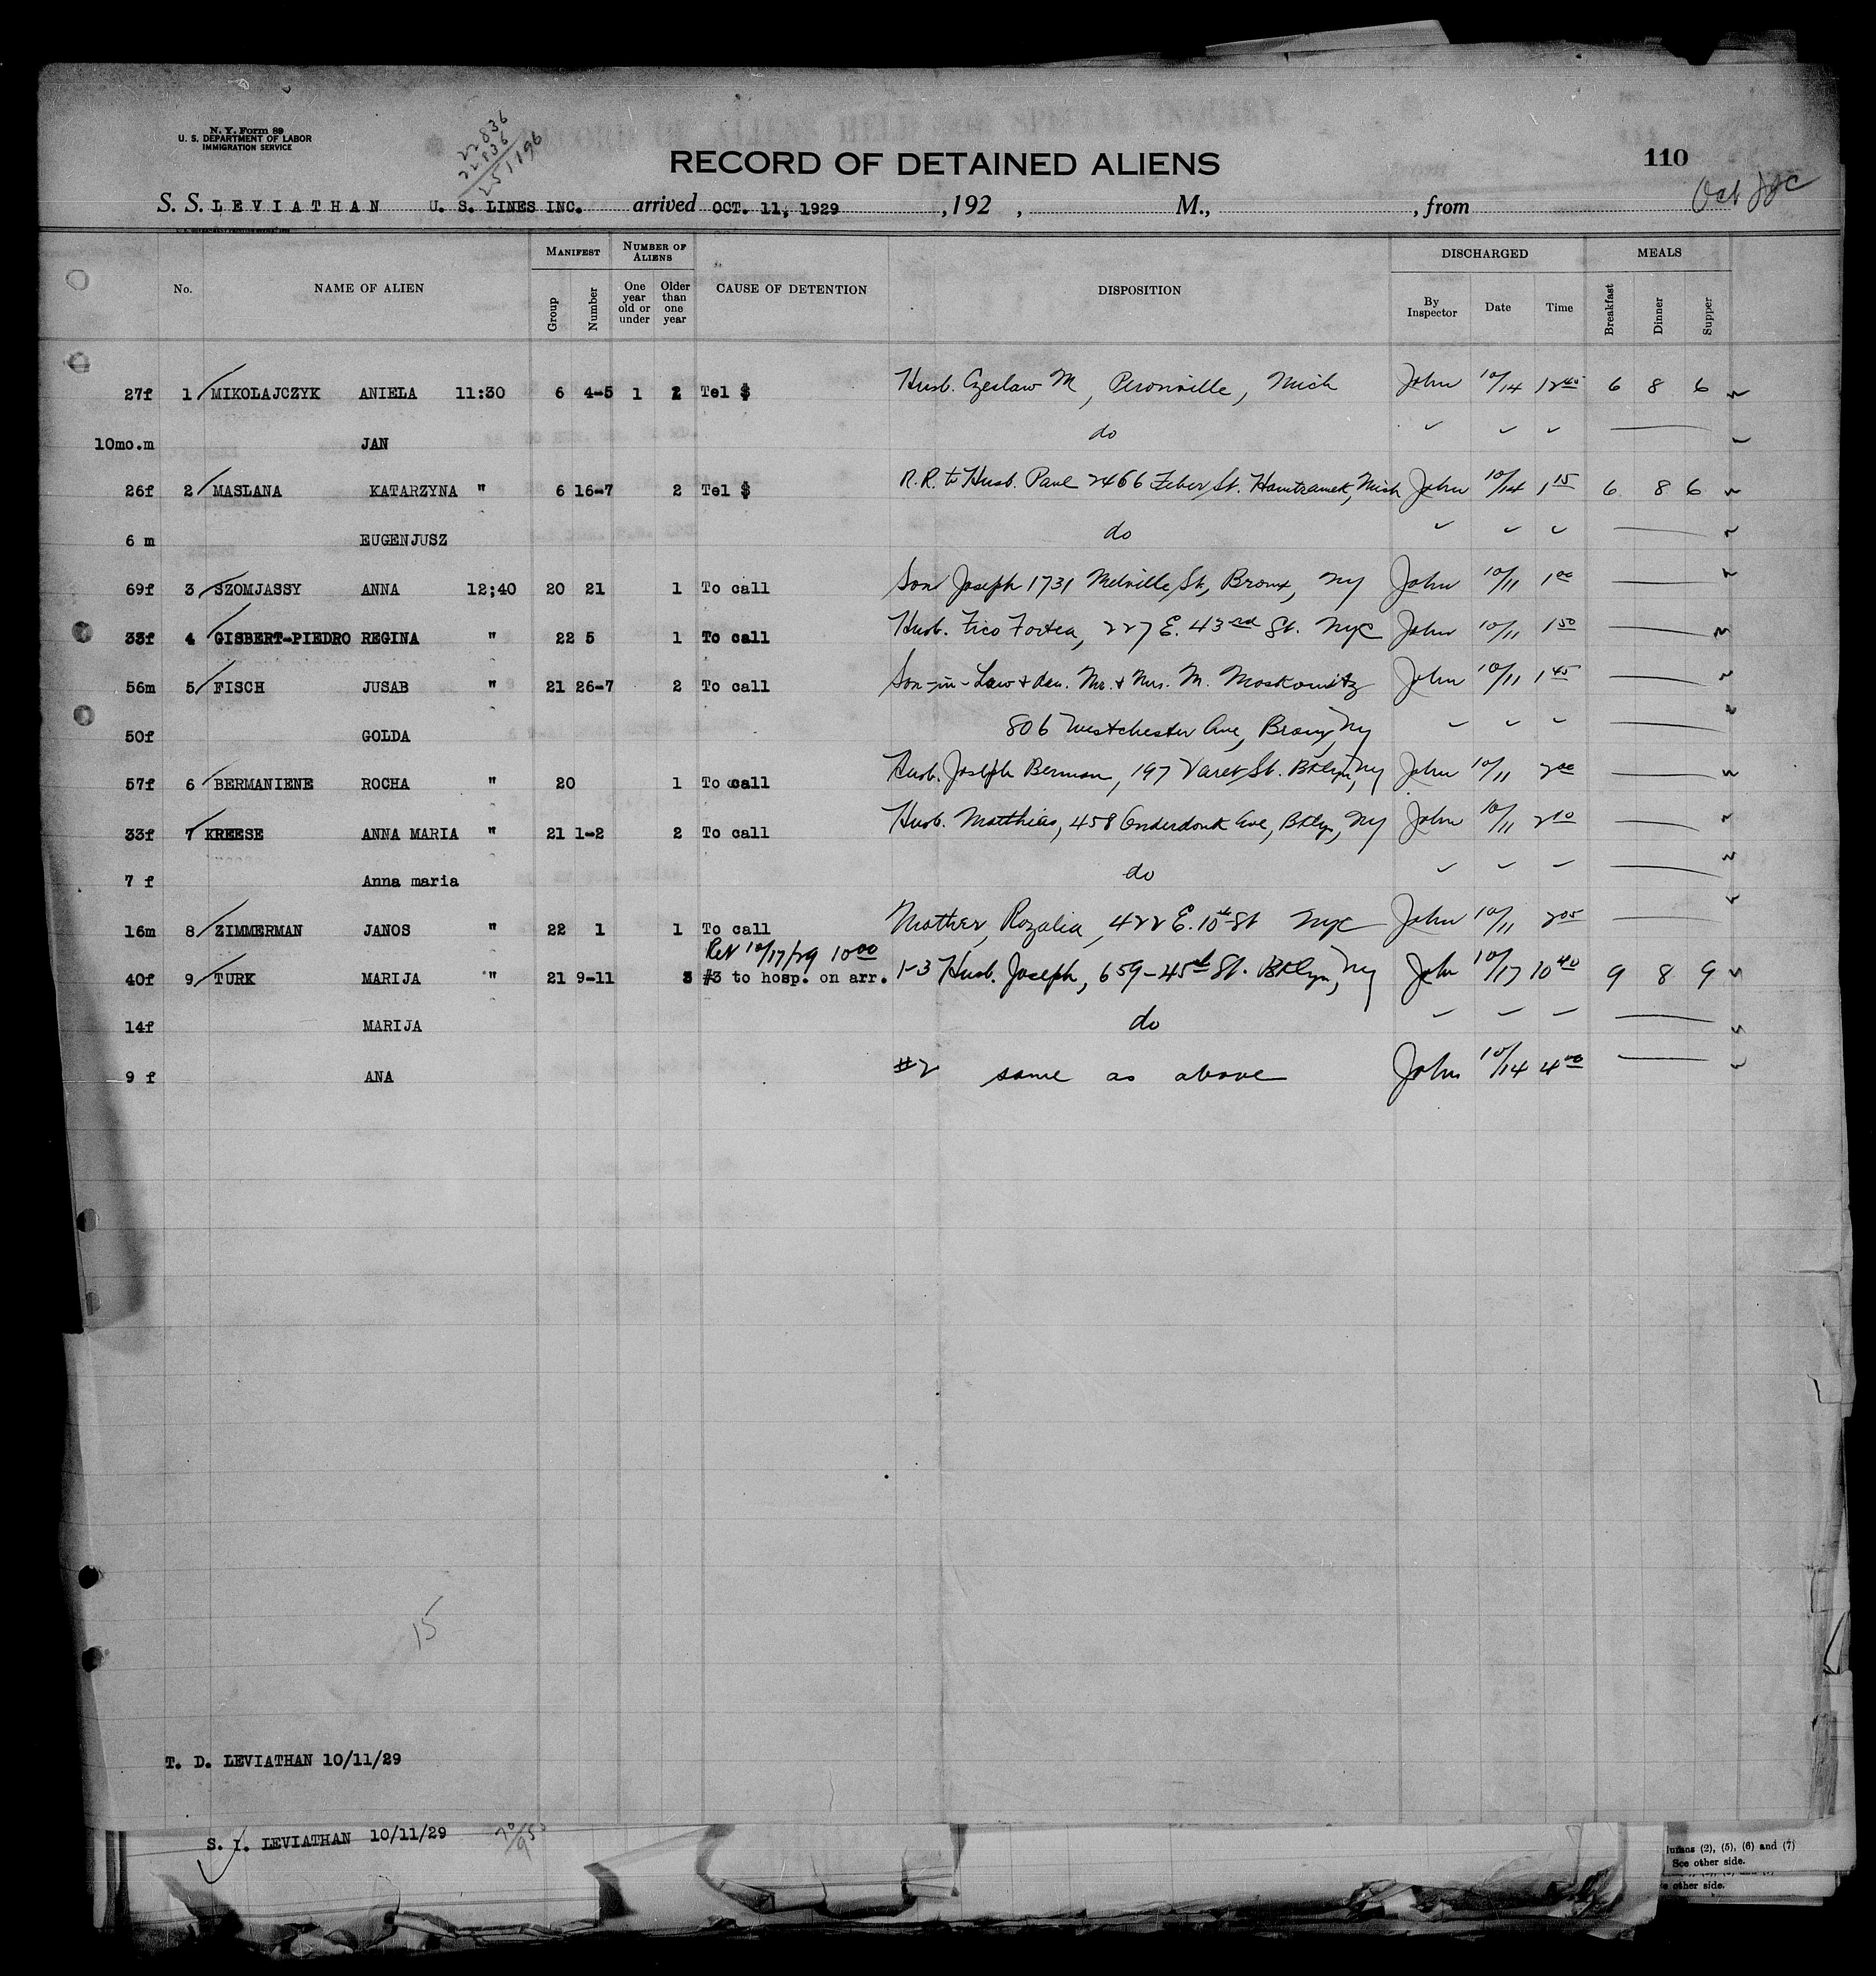 N. Y. Form 89
U. S. DEPARTMENT OF LABOR
IMMIGRATION SERVICE
22836
22836
251196
RECORD OF DETAINED ALIENS
110
Oct
S. S. LEVIATHAN U. S. LINES INC. arrived OCT. 11, 1929 , 192 , M., , from
No. NAME OF ALIEN MANIFEST Group Number NUMBER OF ALIENS One year old or under Older than one year CAUSE OF DETENTION DISPOSITION DISCHARGED By Inspector Date Time MEALS Breakfast Dinner Supper
27f 1 MIKOLAJCZYK ANIELA 11:30 6 4-5 1 1 Tel $ Husb. Czeslaw M, Peronville, Mich John 10/14 12 40 6 8 6
10mo.m JAN do
26f 2 MASLANA KATARZYNA " 6 16-7 2 Tel $ R.R. to Husb. Paul 2466 Faber St. Hamtramck, Mich John 10/14 1 15 6 8 6
6 m EUGENJUSZ do
69f 3 SZOMJASSY ANNA 12;40 20 21 1 To call Son Joseph 1731 Melville St, Bronx, Ny John 10/11 1 00
33f 4 GISBERT-PIEDRO REGINA " 22 5 1 To call Husb. Fico Fortea, 227 E. 43rd St. NyC John 10/11 1 50
56m 5 FISCH JUSAB " 21 26-7 2 To call Son-in-Law + dau. Mr. + Mrs. M. Moskowitz John 10/11 1 45
50f GOLDA 806 Westchester Ave, Bronx, Ny
57f 6 BERMANIENE ROCHA " 20 1 To call Husb. Joseph Berman, 197 Varet St. Bklyn, Ny John 10/11 2 00
33f 7 KREESE ANNA MARIA " 21 1-2 2 To call Husb. Matthias, 458 Onderdonk Ave, Bklyn, Ny John 10/11 2 10
7 f Anna maria do
16m 8 ZIMMERMAN JANOS " 22 1 1 To call Mother, Rozalia, 422 E. 10th St NyC John 10/11 2 05
Ret 10/17/29 10 00
40f 9 TURK MARIJA " 21 9-11 3 #3 to hosp. on arr. 1-3 Husb. Joseph, 659-45th St. Bklyn, Ny John 10/17 10 40 9 8 9
14f MARIJA do
9 f ANA #2 same as above John 10/14 4 00
15
T. D. LEVIATHAN 10/11/29
S. I. LEVIATHAN 10/11/29
(2), (5), (6) and (7)
See other side.
other side.